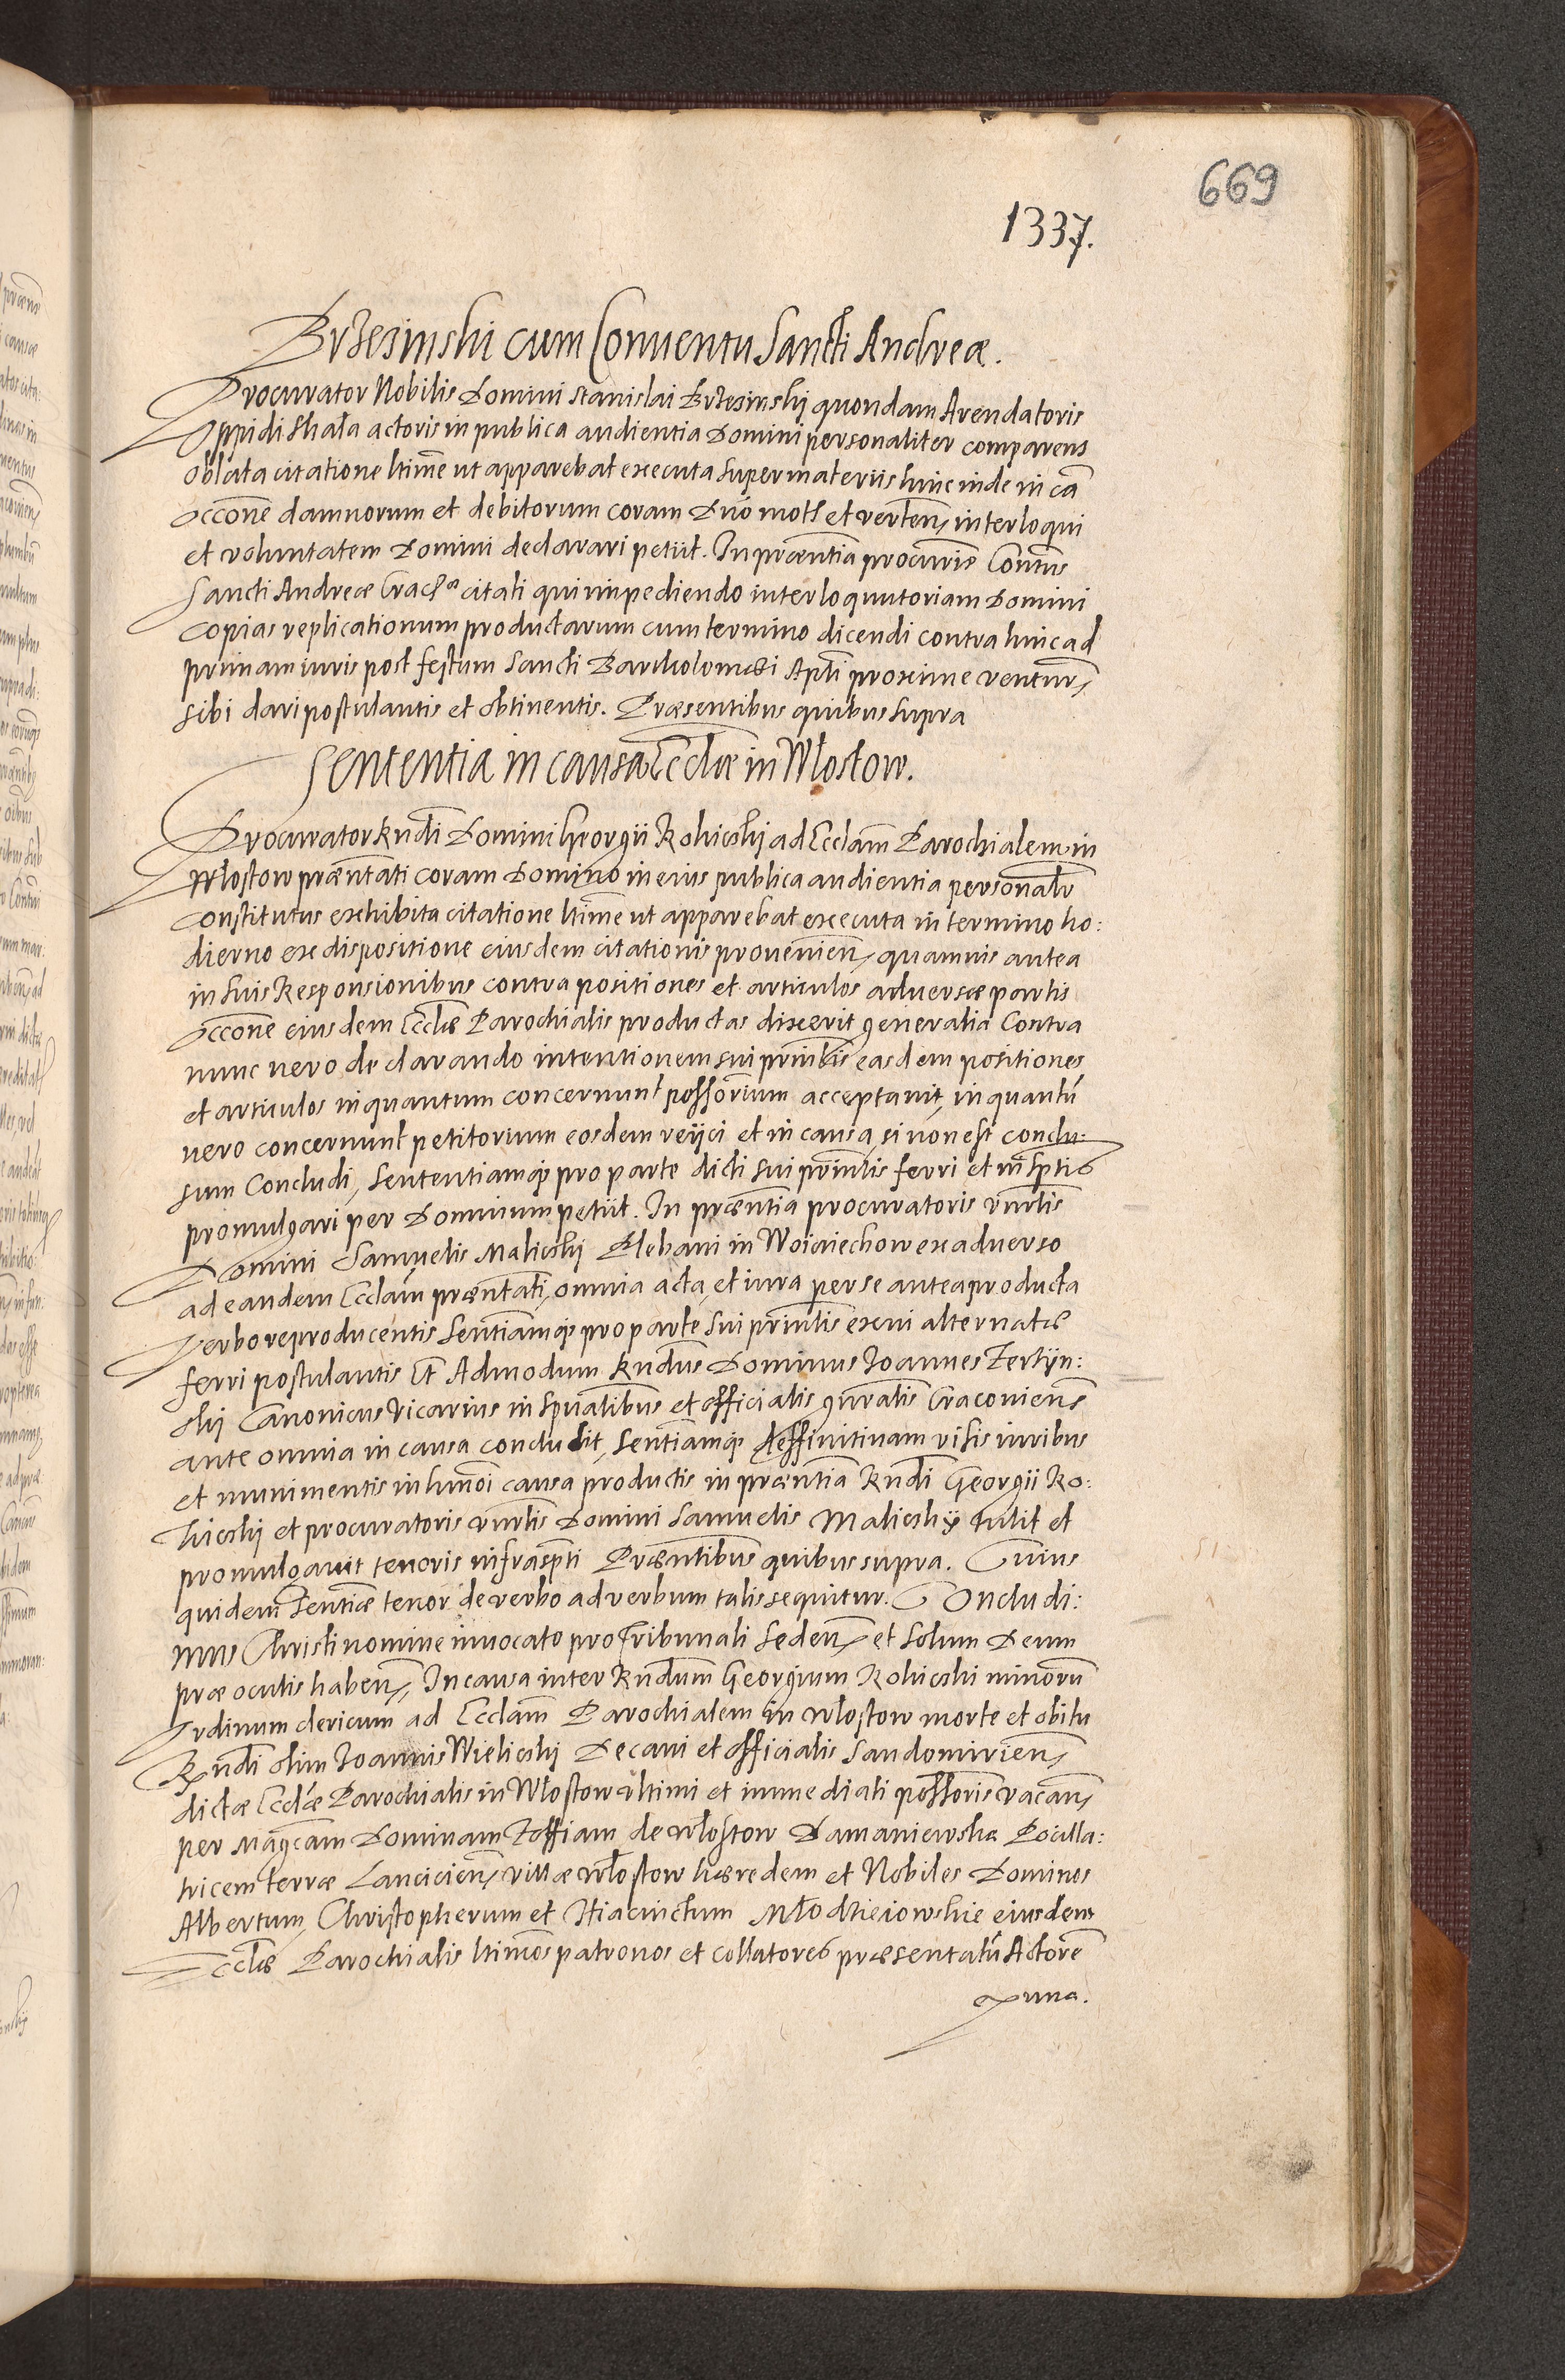 669
1337.
Brzesinski cum Conuentu Sancti Andreæ.
Procurator Nobilis Domini Stanislai Brzesinskij quondam Arendatoris
Oppidi Skała actoris in publica audientia Domini personaliter comparens
oblata citatione ltime ut apparebat executa super materiis hinc inde in ca
occone damnorum et debitorum coram Dno mot et verten, interloqui
et voluntatem Domini declarari petiit. In præntia procuris Contus
Sancti Andreæ Crac citati qui impediendo interloquutoriam Domini
copias replicationum productarum cum termino dicendi contra hinc ad
primam iuris post festum Sancti Bartholomæi Apti proxime ventur,
sibi dari postulantis et obtinentis. Præsentibus quibus supra
Sententia in causa Ecclæ in Włostow.
Procurator Rndi Domini Georgii Rokicskij ad Ecclam Parochialem in
Włostow præntati coram Domino in eius publica audientia personalr
constitutus exhibita citatione ltime ut apparebat executa in termino ho:
dierno ex dispositione eiusdem citationis prouenien, quamuis antea
in suis Responsionibus contra positiones et articulos aduersæ partis
occone eiusdem Ecclæ Parochialis productas dixerit generalia Contra
nunc uero declarando intentionem sui prinlis easdem positiones
et articulos inquantum concernunt possorium acceptauit, inquantu
uero concernunt petitorium eosdem reijci et in causa, si non est conclu:
sum Concludi, Sententiamq pro parte dicti sui prinlis ferri et in sptis
promulgari per Dominum petiit. In præntia procuratoris vnrlis
Domini Samuelis Malicskij Plebani in Woiciechow ex aduerso
ad eandem Ecclam præntati, omnia acta, et iura per se antea producta
verbo reproducentis Sentiamq pro parte sui prinlis exiui alternatæ
ferri postulantis Et Admodum Rndus Dominus Joannes Fertijn:
skij Canonicus Vicarius in Spualibus et officialis gnralis Cracouiens
ante omnia in causa concludit, Sentiamq deffinitiuam visis iuribus
et munimentis in hmoi causa productis in præntia Rndi Georgii Ro:
kicskij et procuratoris vnrlis Domini Samuelis Malicskij tulit et
promulgauit tenoris infraspti Præntibus quibus supra. Cuius
quidem Sentiæ tenor de verbo ad verbum talis sequitur. Concludi:
mus Christi nomine inuocato pro Tribunali seden, et solum Deum
præ oculis haben, In causa inter Rndum Georgium Rokicski minoru
ordinum clericum ad Ecclam Parochialem in Włostow morte et obitu
Rndi olim Joannis Wielicskij Decani et officialis Sandomirien,
dictæ Ecclæ Parochialis in Włostow ultimi et immediati possoris vacan,
per Magcam Dominam Zoffiam de Włostow Damaniewska Pocilla:
tricem terræ Lancicien, villæ Włostow hæredem et Nobiles Dominos
Albertum, Christopherum et Hiacinctum Młodzieiowskie eiusdem
Ecclæ Parochialis ltimos patronos et collatores præsentatu Actore
ex una.